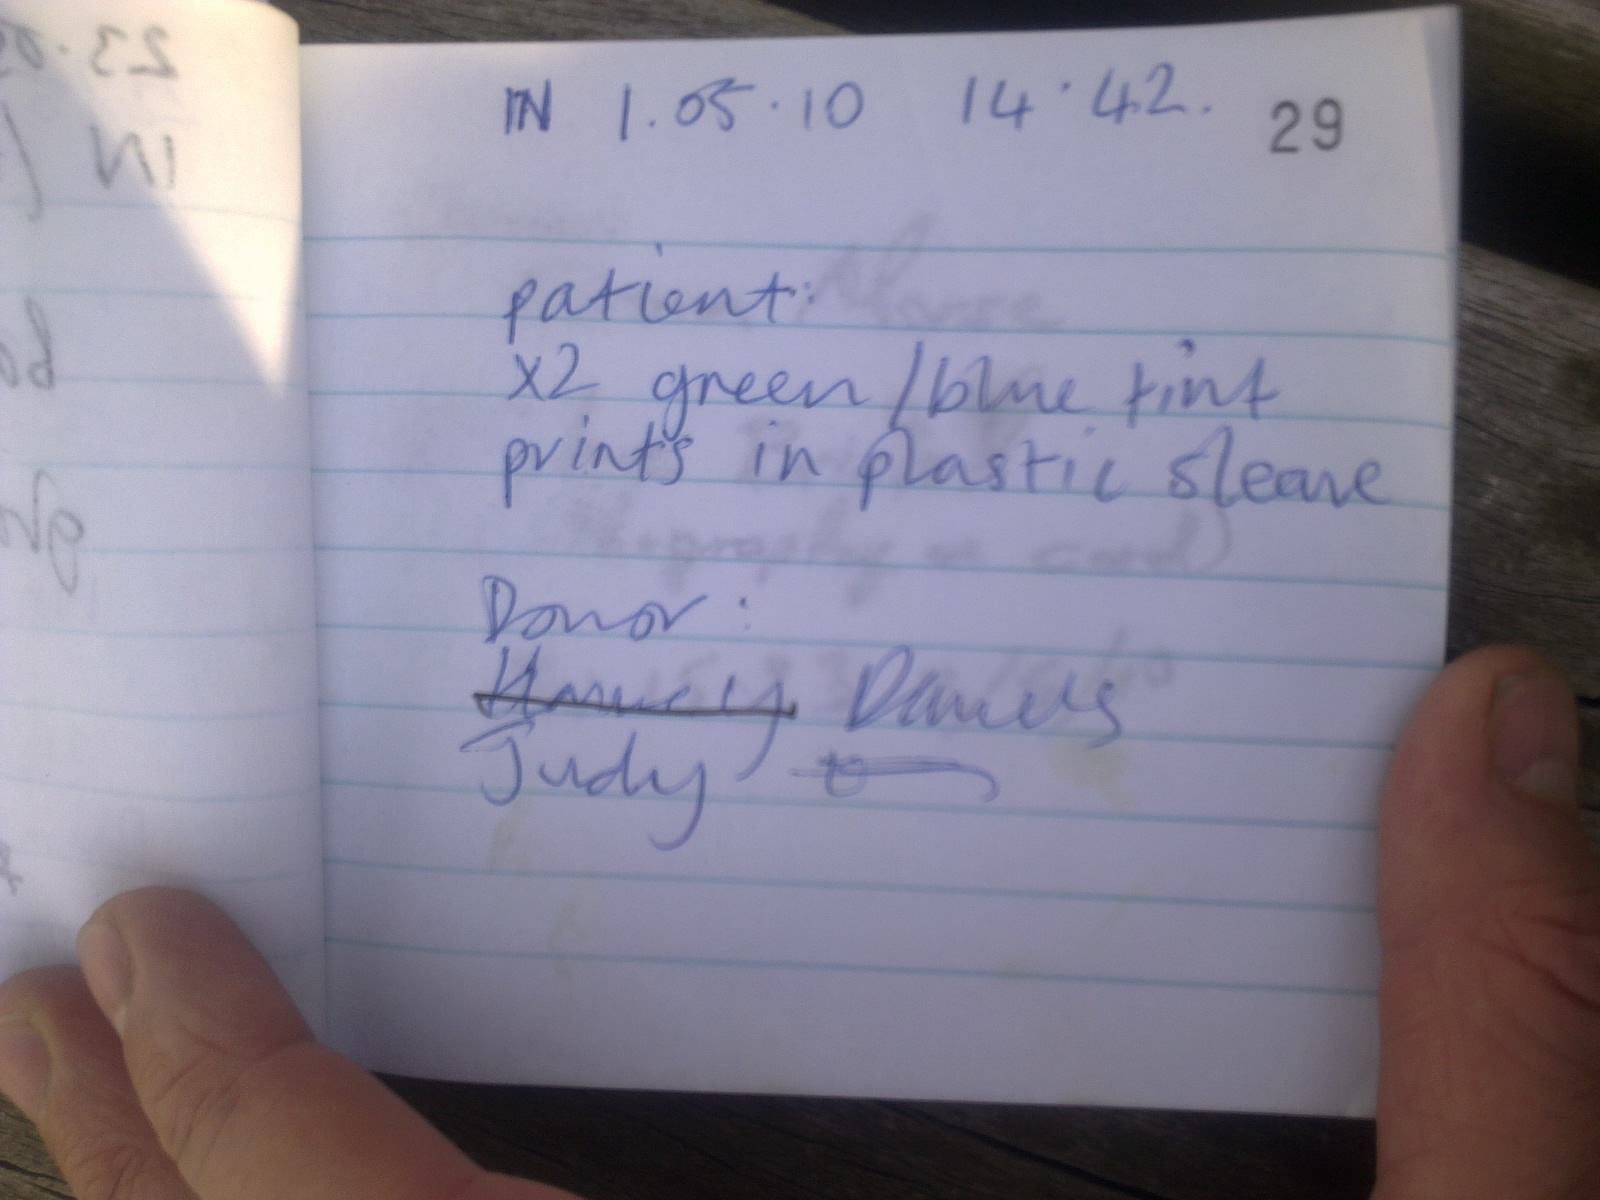 IN 1.05.10 14.42. 29
patient:
x2 green/blue tint
prints in plastic sleave
Donor:
Harvey Daniels
Judy
23.05
IN